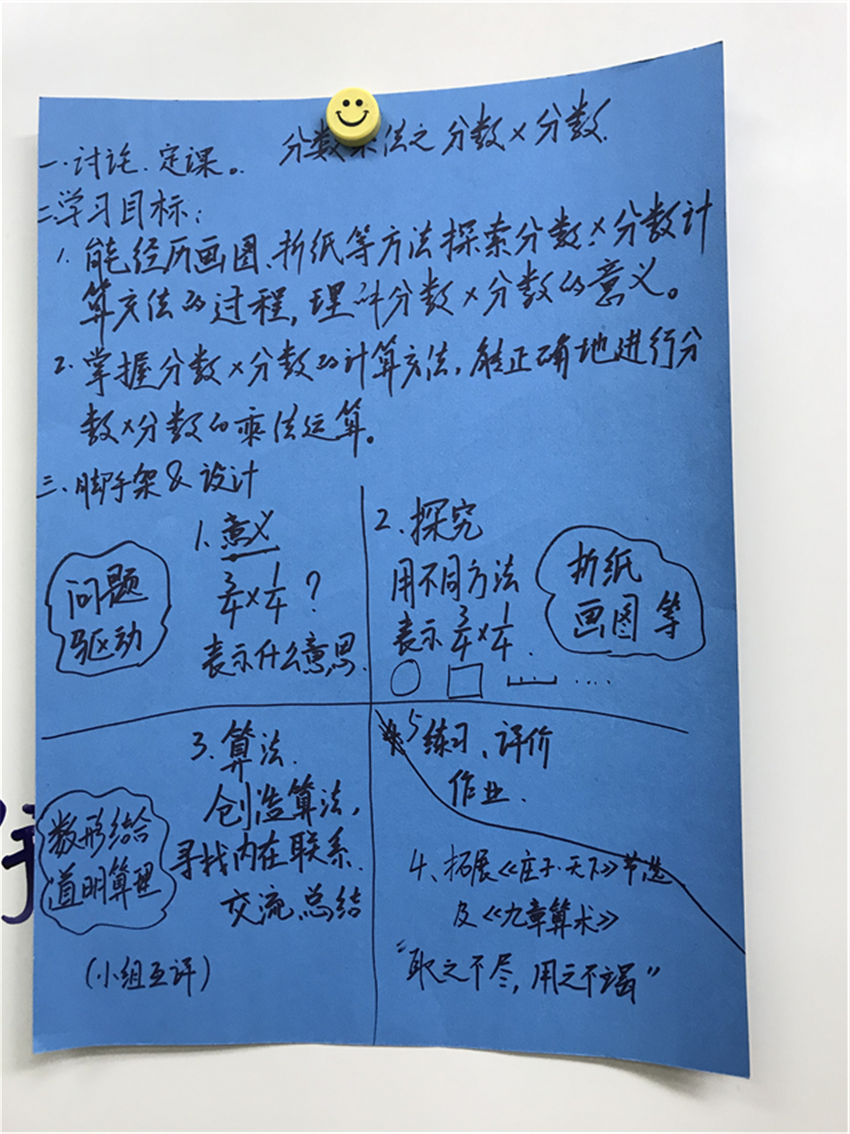 一.讨论.定课。 分数乘法之分数×分数.
二.学习目标:
1.能经历画图、折纸等方法探索分数×分数计
算方法的过程,理解分数×分数的意义。
2.掌握分数×分数的计算方法,能正确地进行分
数×分数的乘法运算。
三.脚手架&设计
问题
驱动
1.意义
3/4×1/4?
表示什么意思.
2.探究
用不同方法
表示3/4×1/4.
....
折纸
画图等
3.算法.
创造算法,
寻找内在联系.
交流总结
数形结合
道明算理
(小组互评)
5练习、评价
作业.
4、拓展《庄子·天下》节选
及《九章算术》
"取之不尽,用之不竭"